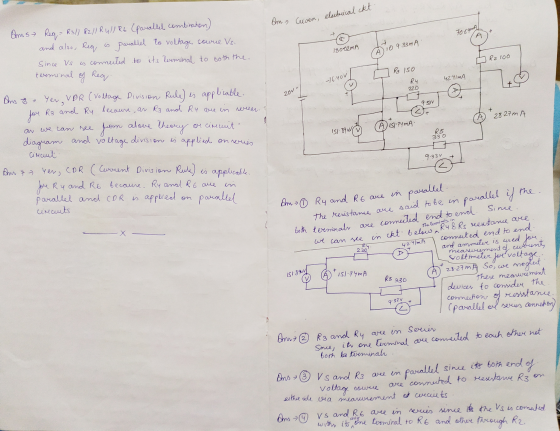 Ans 5 → Req = R3 // R2 // R4 // R6 (parallel combination)
and also, Req is parallel to voltage source Vs
Since Vs is connected to its terminal to both the
terminal of Req
Ans 6 → Yes, VDR (Voltage Division Rule) is applicable
for R3 and R4 because, as R3 and R4 are in series
as we can see from above theory or circuit
diagram and voltage division is applied on series
circuit
Ans 7 → Yes, CDR (Current Division Rule) is applicable
for R4 and R6 because, R4 and R6 are in
parallel and CDR is applied on parallel
circuits
x
Ans → Given, electrical ckt
R3 150
R4
220
R2 100
20V
28.27mA
R5
330
Ans → ① R4 and R6 are in parallel
The resistance are said to be in parallel if the
both terminals are connected end to end. Since
we can see in ckt below R4 & R6 resistance are
connected end to end
and ammeter is used for
measurement of current,
voltmeter for voltage
So, we neglect
these measurement
devices to consider the
connections of resistance
(parallel or series connection)
R4
220
Ans → ② R3 and R4 are in series
Since, its one terminal are connected to each other not
both the terminals.
Ans → ③ Vs and R3 are in parallel since its both end of
voltage source are connected to resistance R3 on
either side via measurement of circuits
Ans → ④ Vs and R6 are in series since the Vs is connected
with its one terminal to R6 and other through R2